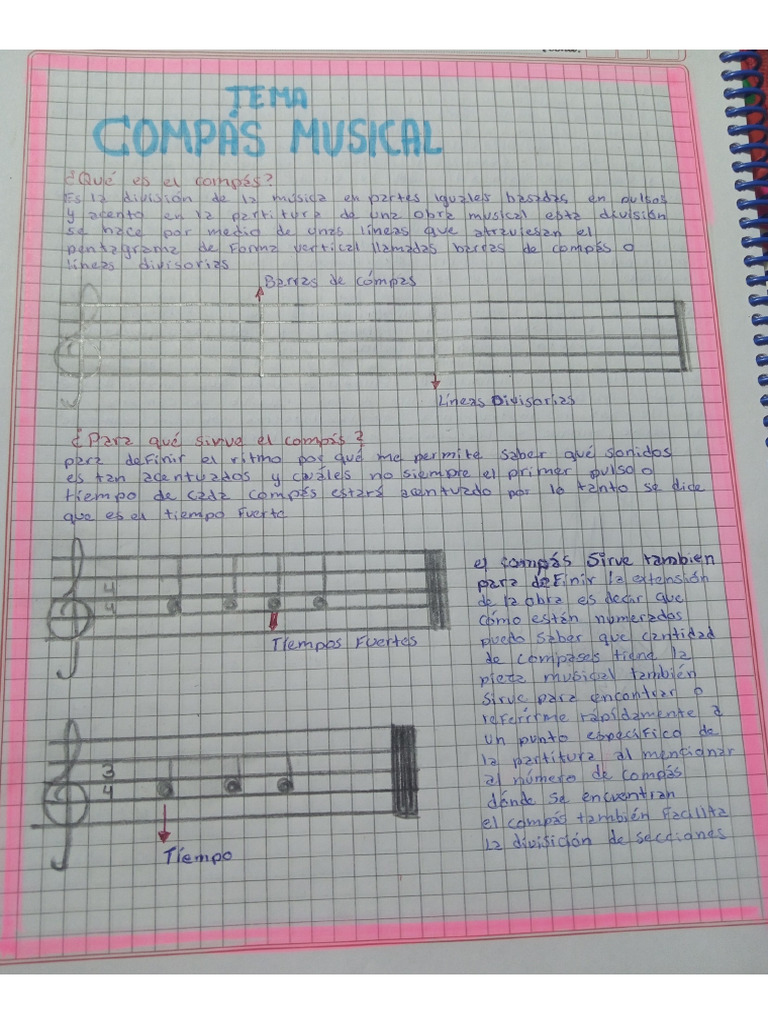 TEMA
COMPÁS MUSICAL
¿Qué es el compás?
Es la división de la música en partes iguales basadas en pulsos
y acento en la partitura de una obra musical esta división
se hace por medio de unas líneas que atraviesan el
pentagrama de forma vertical llamadas barras de compás o
líneas divisorias
Barras de cómpas
Líneas Divisorias
¿Para qué sirve el compás?
para definir el ritmo pos qué me permite saber qué sonidos
es tan acentuados y cuáles no siempre el primer pulso o
tiempo de cada compás estará acentuado por lo tanto se dice
que es el tiempo fuerte
4
4
Tiempos Fuertes
3
4
Tiempo
el compás Sirve tambien
para definir la extensión
de la obra es decir que
cómo están numerados
puedo saber que cantidad
de compases tiene la
pieza musical también
sirve para encontrar o
referirme rápidamente a
un punto específico de
la partitura al mencionar
al número de compás
dónde se encuentran
el compás también facilita
la divisición de secciones